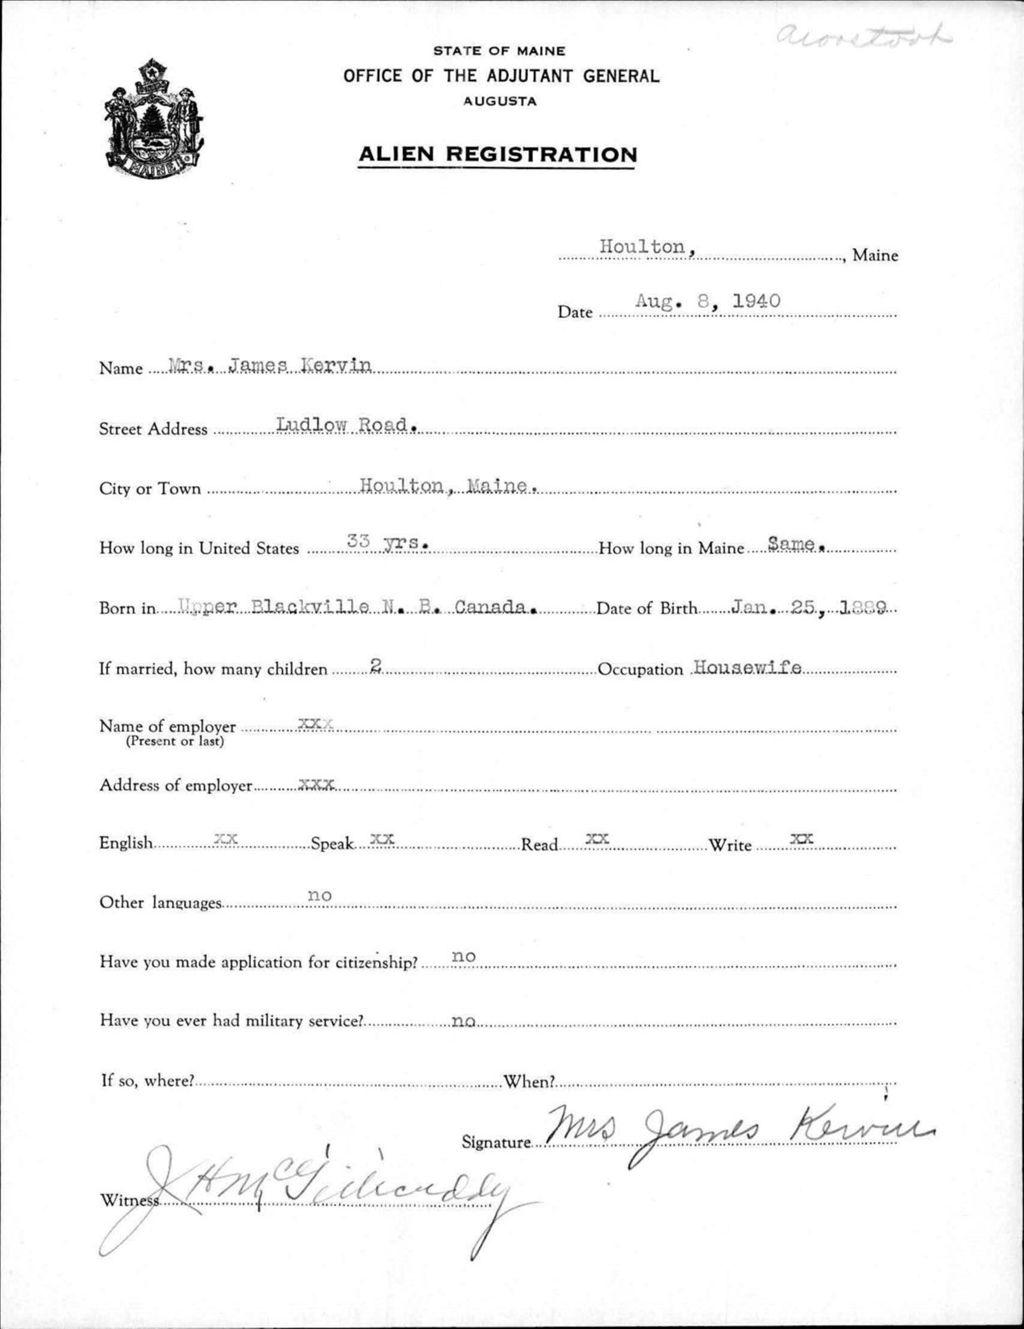 Aroostook
STATE OF MAINE
OFFICE OF THE ADJUTANT GENERAL
AUGUSTA
ALIEN REGISTRATION
MAINE
Houlton, , Maine
Date Aug. 8, 1940
Name Mrs. James Kervin
Street Address Ludlow Road.
City or Town Houlton, Maine.
How long in United States 33 yrs. How long in Maine Same.
Born in Upper Blackville N. B. Canada. Date of Birth Jan. 25, 1889
If married, how many children 2 Occupation Housewife
Name of employer xxx
(Present or last)
Address of employer xxx
English xx Speak xx Read xx Write xx
Other languages no
Have you made application for citizenship? no
Have you ever had military service? no
If so, where? When?
Signature Mrs James Kervin
Witness J H McGillicuddy